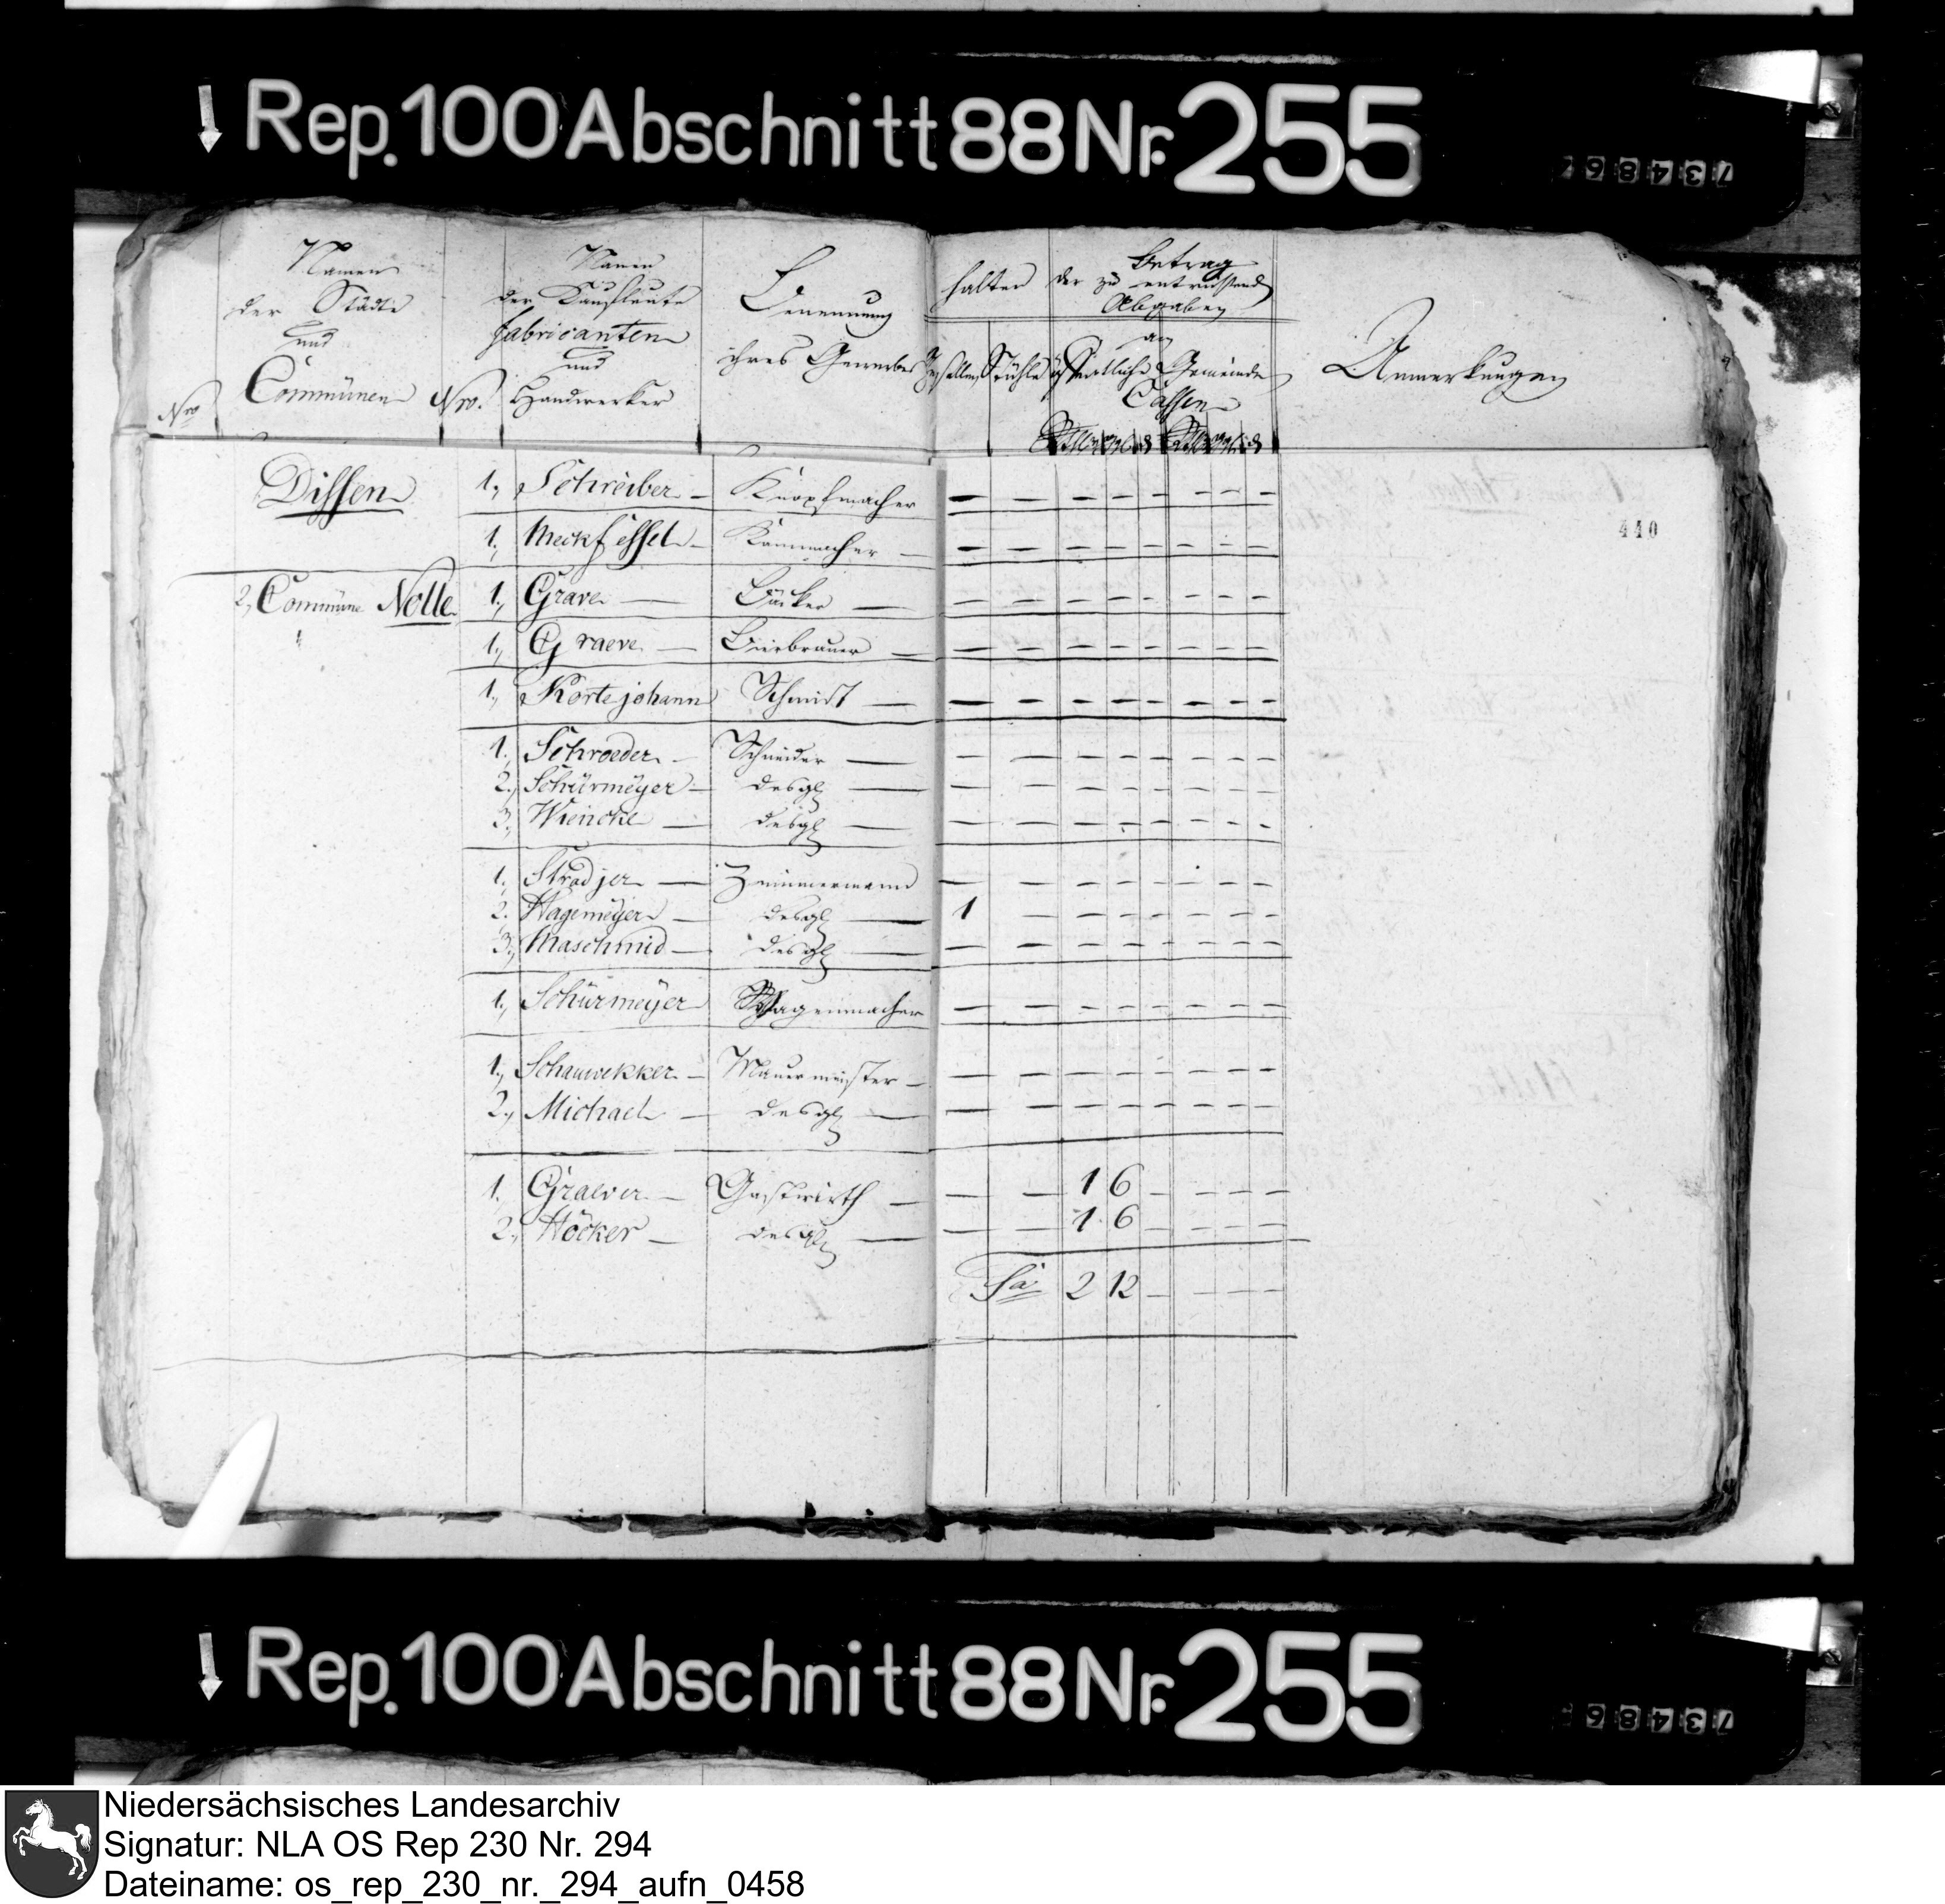 Rep. 100 Abschnitt 88 Nr. 255
73486
Nro
Namen
der Städte
und
Communen
Nro.
Namen
der Kaufleute
fabricanten
und
Handwerker
Benennung
ihres Gewerbes
halten
Gesellen
Stühle
Betrag
der zu entrichtend
Abgaben
an
öffentliche Gemeinde
Cassen
Anmerkungen
440
Dissen 1., Schreiber — Knopfmacher — — — — — — — —
1., Meckfessel — Kammacher — — — — — — — — —
2, Commüne Nolle 1., Grave — Bäcker — — — — — — — — —
1., Graeve — Bierbrauer — — — — — — — — —
1., Kortejohann Schmidt — — — — — — — — —
1. Schroeder — Schneider — — — — — — — — —
2., Schürmeÿer — desgl — — — — — — — — —
3., Wiencke — desgl — — — — — — — — —
1. Stradjer — Zimmermann — — — — — — — —
2. Hagemeÿer — desgl — 1 — — — — — — —
3., Maschmid — desgl — — — — — — — — —
1., Schürmeÿer Wagenmacher — — — — — — — —
1., Schauwekker — Mauermeister — — — — — — — — —
2., Michael — desgl — — — — — — — — —
1. Graever — Gastwirth — — — 1 6 — — — —
2., Höcker — desgl — — — 1 6 — — — —
Sa 2 12 — — — —
Rep. 100 Abschnitt 88 Nr. 255
73486
Niedersächsisches Landesarchiv
Signatur: NLA OS Rep 230 Nr. 294
Dateiname: os_rep_230_nr._294_aufn_0458